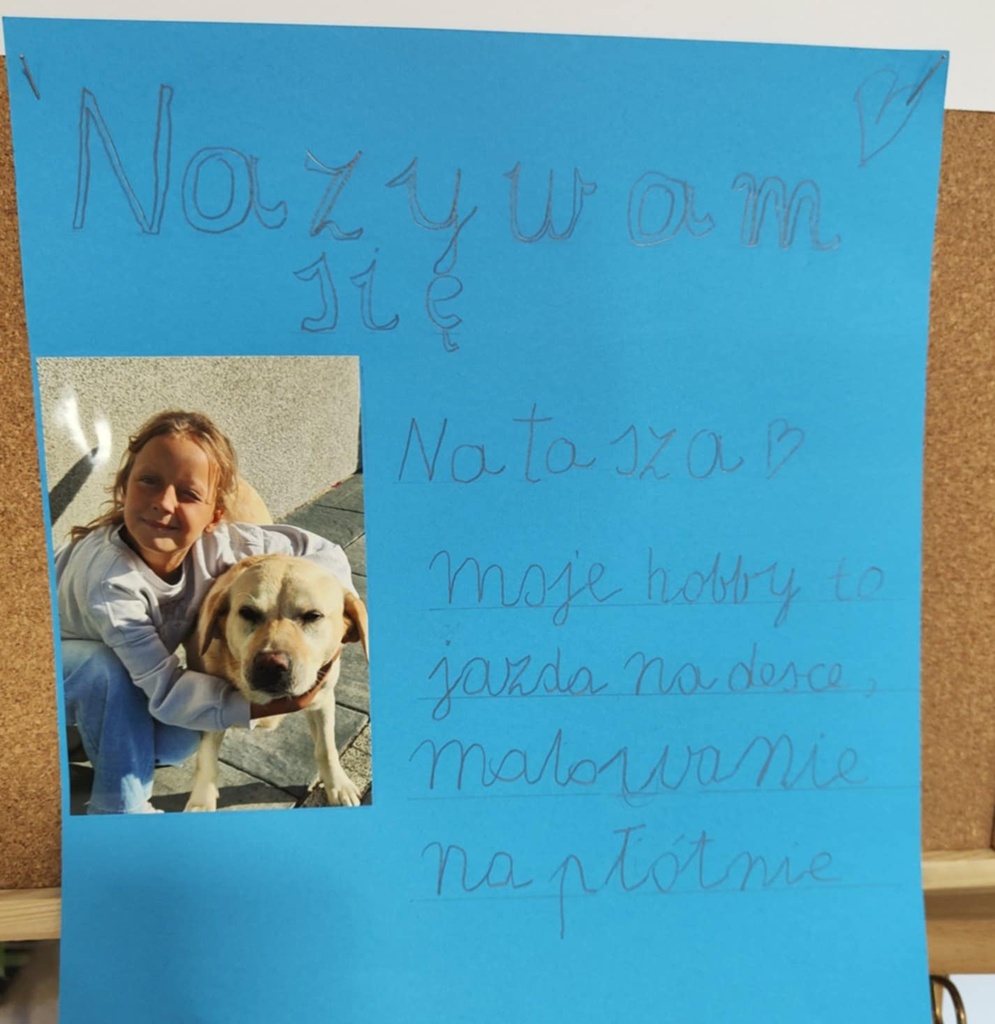 Nazywam
się
Natasza
moje hobby to
jazda na desce,
malowanie
na płótnie